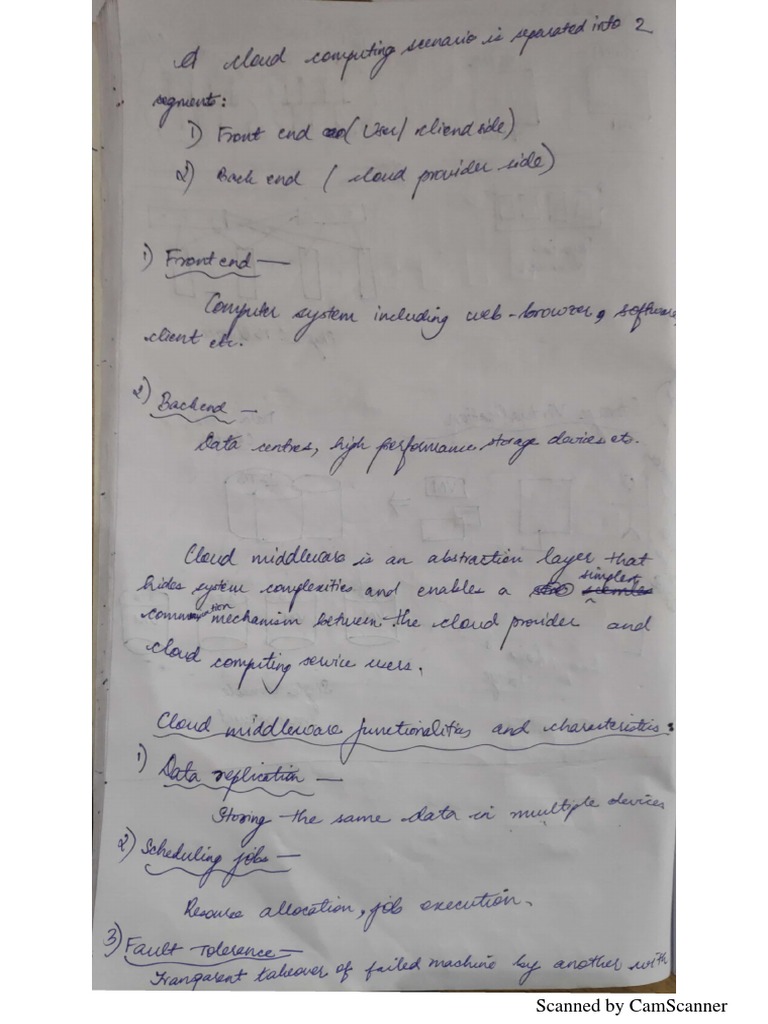 A cloud computing scenario is separated into 2
segments:
1) Front end (User/ cliend side)
2) Back end ( cloud provider side)
1) Front end —
Computer system including web-browser, software,
client etc.
2) Backend —
Data centres, high performance storage devices etc.
Cloud middleware is an abstraction layer that
hides system complexities and enables a simpler
communication mechanism between the cloud provider and
cloud computing service users.
Cloud middleware functionalities and characteristics:
1) Data replication —
Storing the same data in multiple devices
2) Scheduling jobs —
Resource allocation, job execution.
3) Fault Tolerence —
Transparent takeover of failed machine by another with
Scanned by CamScanner